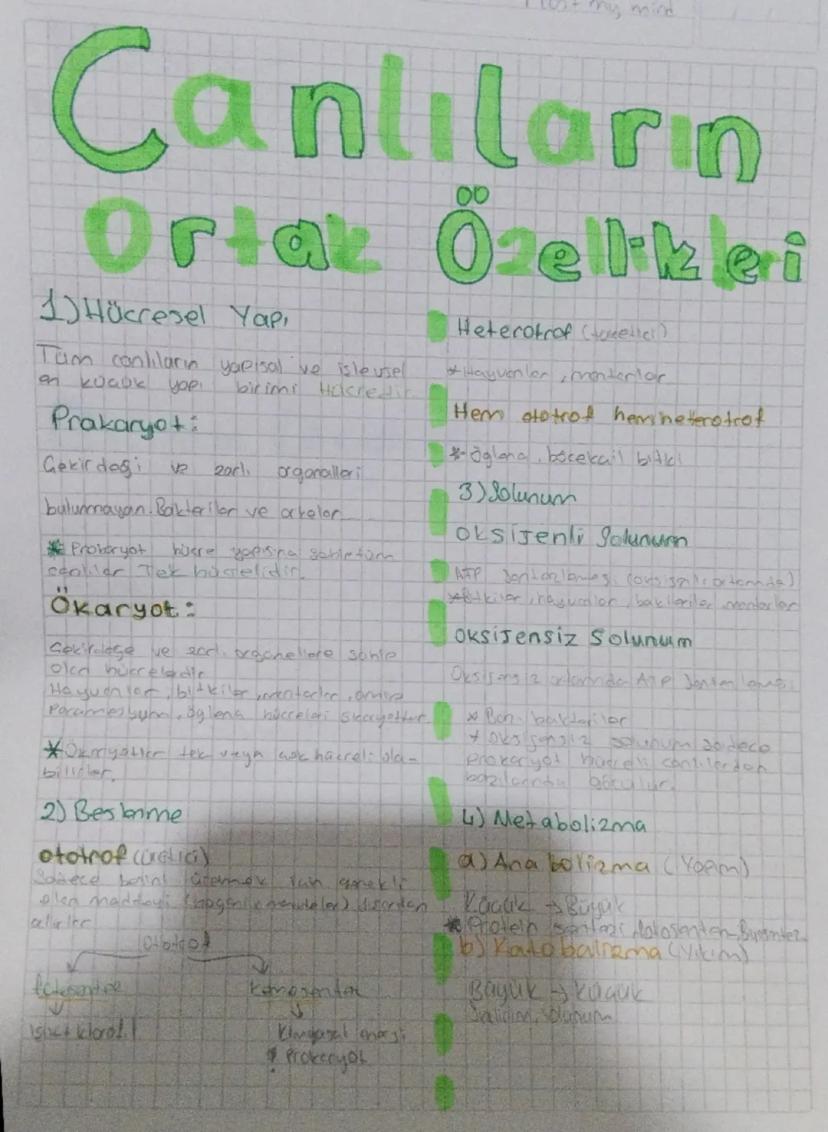 my mind
Canlıların
Ortak Özellikleri
1) Hücresel Yapı
Tüm canlıların yapısal ve işlevsel
en küçük yapı birimi Hücredir.
Prakaryot:
Çekirdeği ve zarlı organelleri
bulunmayan. Bakteriler ve arkeler
* Prokaryot hücre yapısına sahip tüm
canlılar Tek hücrelidir.
Ökaryot:
Çekirdeğe ve zarlı organellere sahip
olan hücrelerdir
Hayvanlar, bitkiler, mantarlar, amip
öglena hücreleri ökaryottur.
* Ökaryotlar tek veya çok hücreli ola-
bilirler.
2) Beslenme
ototrof (üretici)
Sadece besini üretmek için gerekli
olan maddeyi dışardan
alırlar
ototrof
fotosentez kemosentez
ışık+klorofil kimyasal enerji
Prokaryot
Heterotrof (tüketici)
* Hayvanlar, mantarlar
Hem ototrof hem heterotrof
* Öglena, böcekçil bitki
3) Solunum
oksijenli Solunum
ATP Sentezlemesi (oksijenli ortamda)
* Bitkiler, hayvanlar, bakteriler, mantarlar
oksijensiz Solunum
Oksijensiz ortamda ATP
* Bazı bakteriler
* oksijensiz solunum sadece
prokaryot hücreli canlılardan
bazılarında görülür.
4) Metabolizma
a) Anabolizma (Yapım)
Küçük → Büyük
* Protein sentezi, fotosentez
b) Katabolizma (Yıkım)
Büyük → küçük
Sindirim, solunum